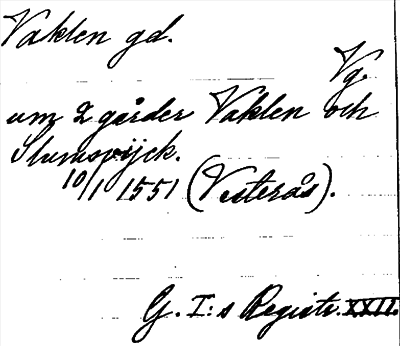 Vaklen gd.
Vg.
um 2 gårder Vaklen och
Slumsvijck.
10/1 1551 (Vesterås).
G. I:s Registr. XXII.